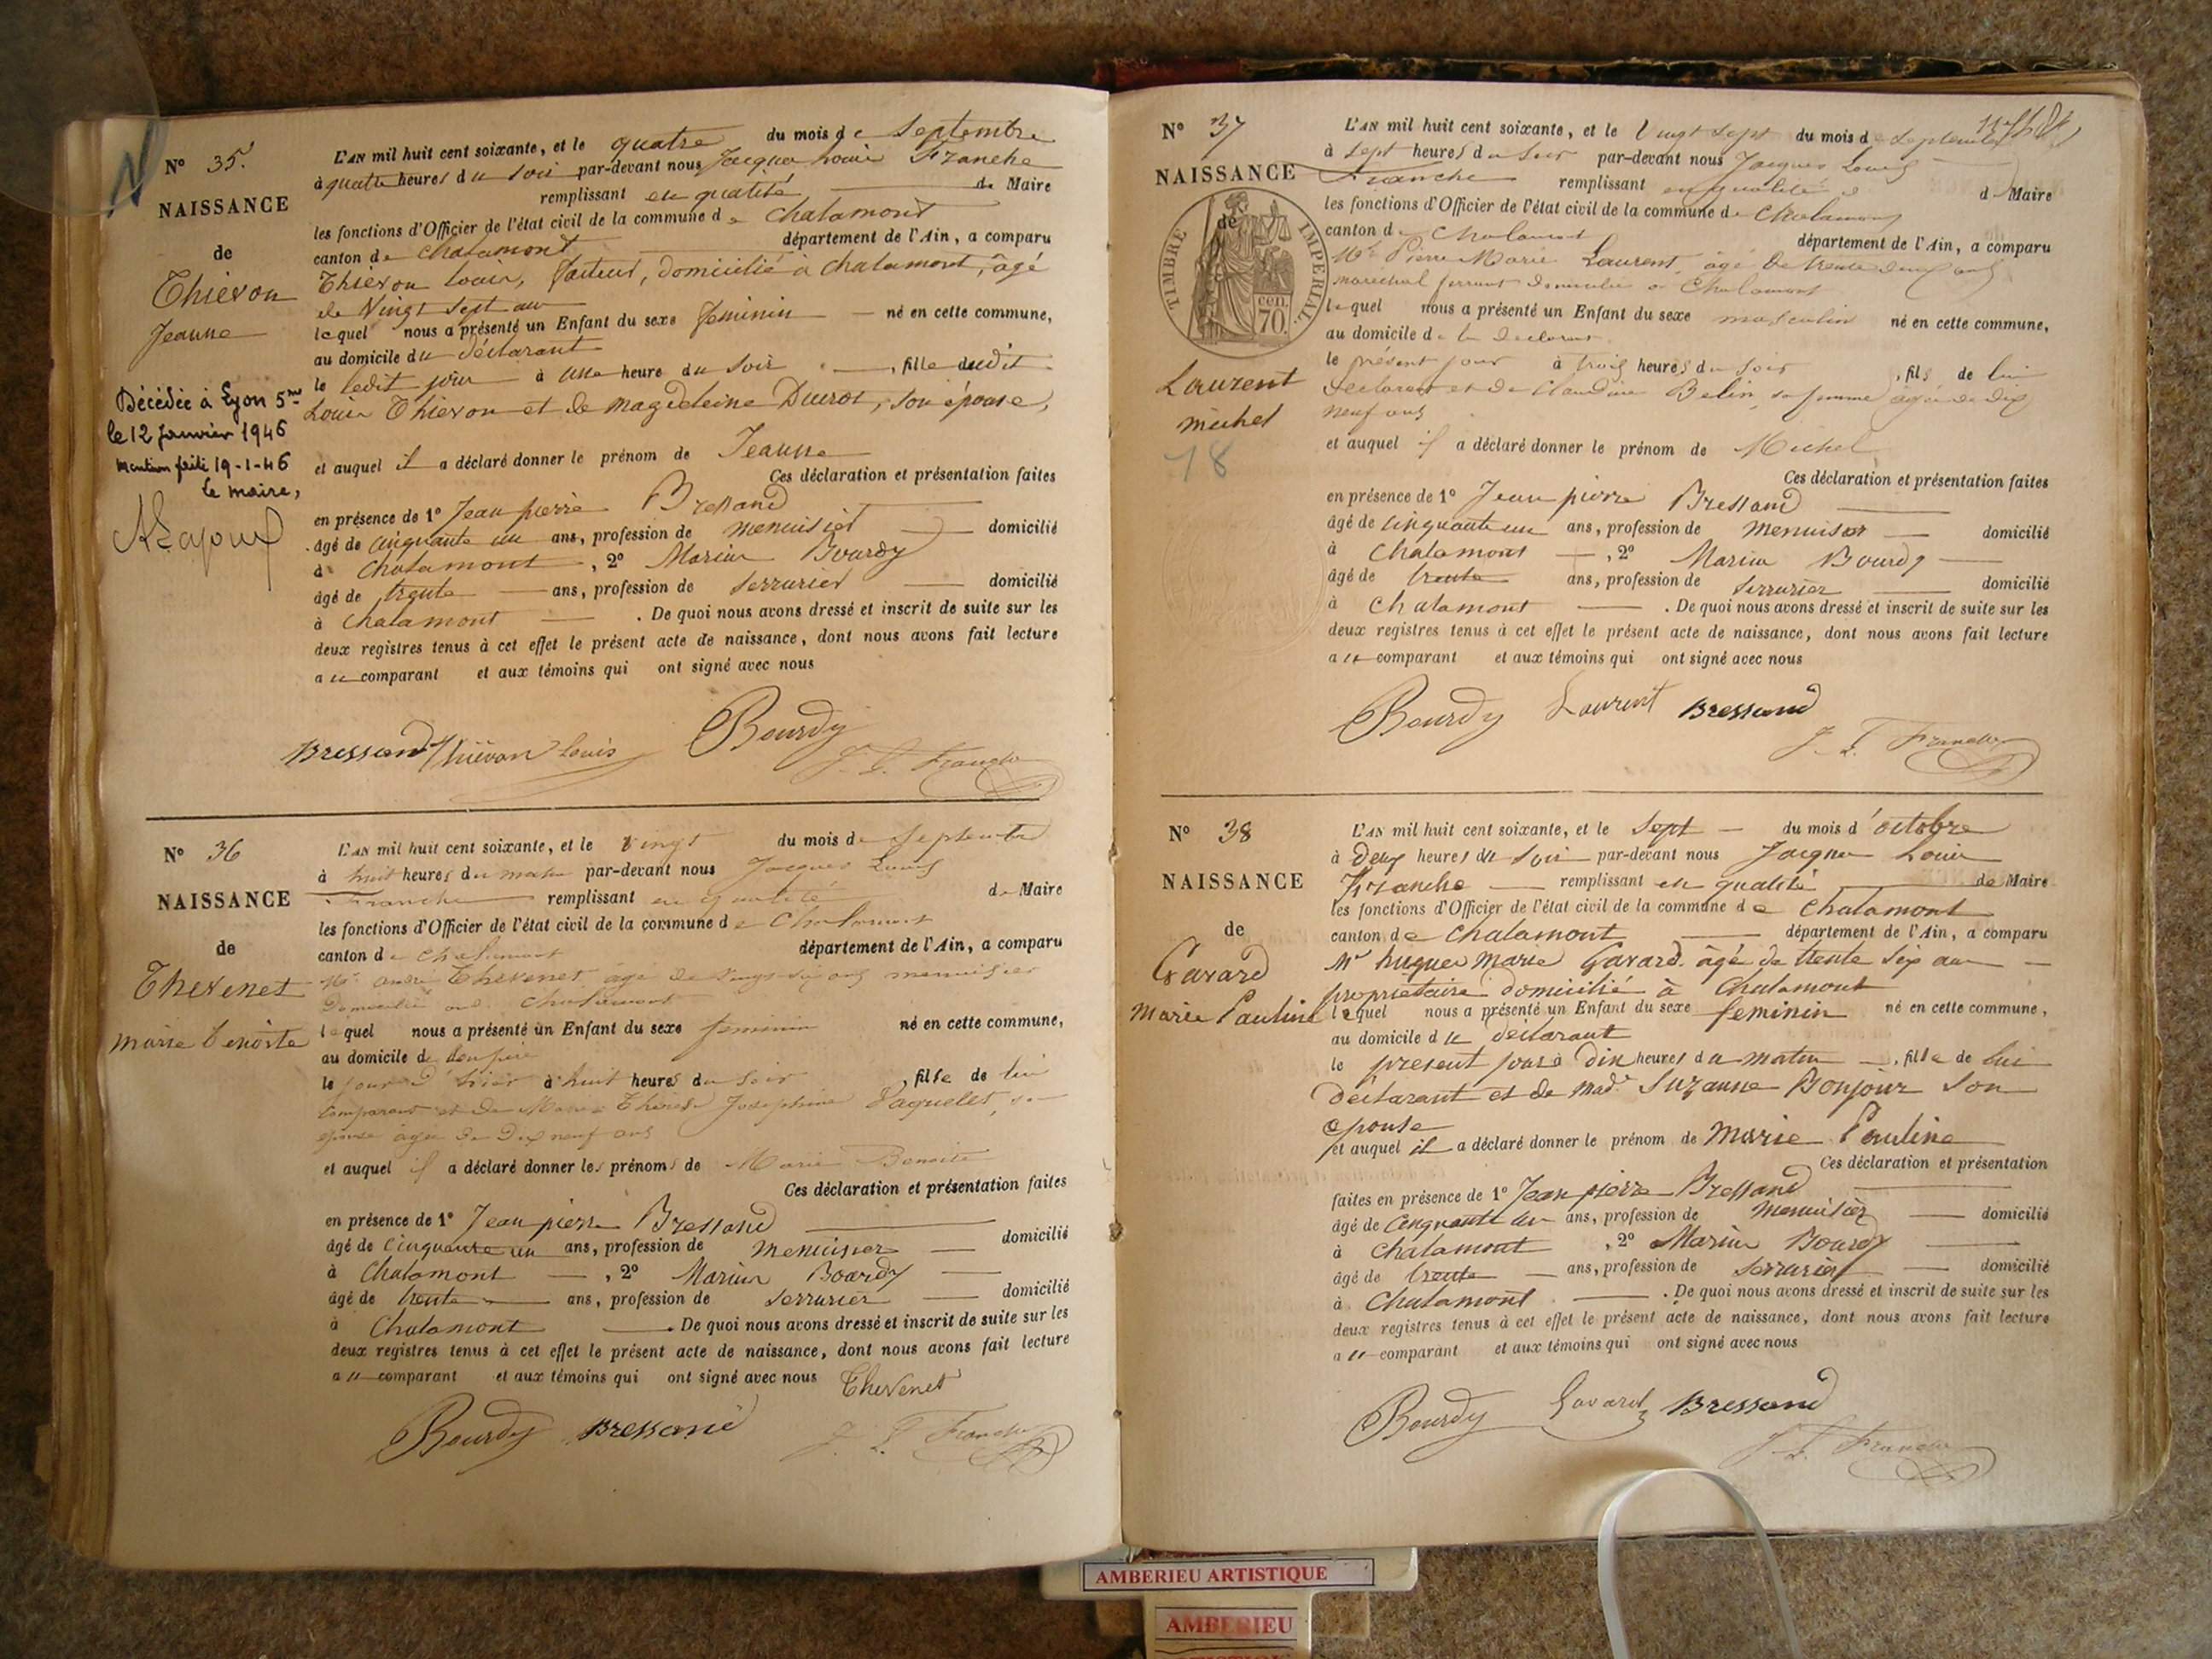 N° 35.
NAISSANCE
de
Thievon
Jeanne
Décédée à Lyon 5me
le 12 Janvier 1946
Mention faite 19-1-46
Le maire,
L'AN mil huit cent soixante, et le quatre du mois de Septembre
à quatre heures du soir par-devant nous Jacques Louis Franche
remplissant en qualité de Maire
les fonctions d'Officier de l'état civil de la commune de Chalamont
canton de Chalamont département de l'Ain, a comparu
Thievon Louis, facteur, domicilié à Chalamont, âgé
de Vingt sept ans
lequel nous a présenté un Enfant du sexe feminin né en cette commune,
au domicile du déclarant
le ledit jour à une heure du soir, fille dudit
Louis Thievon et de Magdeleine Ducros, son épouse,
et auquel il a déclaré donner le prénom de Jeanne
Ces déclaration et présentation faites
en présence de 1° Jean pierre Bressand
âgé de cinquante un ans, profession de menuisier domicilié
à Chalamont, 2° Marius Bourdy
âgé de trente ans, profession de serrurier domicilié
à Chalamont. De quoi nous avons dressé et inscrit de suite sur les
deux registres tenus à cet effet le présent acte de naissance, dont nous avons fait lecture
au comparant et aux témoins qui ont signé avec nous
Bressand Thiévon Louis Bourdy
J. L. Franche
N° 36
NAISSANCE
de
Thevenet
marie benoite
L'AN mil huit cent soixante, et le vingt du mois de Septembre
à huit heures du matin par-devant nous Jacques Louis
Franche remplissant en qualité de Maire
les fonctions d'Officier de l'état civil de la commune de Chalamont
canton de Chalamont département de l'Ain, a comparu
Mr. andré Thevenet âgé de vingt six ans menuisier
Domicilié Chalamont
lequel nous a présenté un Enfant du sexe feminin né en cette commune,
au domicile de son père
le jour d'hier à huit heures du soir, fille de lui
Comparant et de Marie Thérèse Josephine Paquellet, son
épouse âgée de Dix neuf ans
et auquel il a déclaré donner les prénoms de Marie Benoite
Ces déclaration et présentation faites
en présence de 1° Jean pierre Bressand
âgé de cinquante un ans, profession de menuisier domicilié
à Chalamont, 2° Marius Bourdy
âgé de trente ans, profession de serrurier domicilié
à Chalamont. De quoi nous avons dressé et inscrit de suite sur les
deux registres tenus à cet effet le présent acte de naissance, dont nous avons fait lecture
au comparant et aux témoins qui ont signé avec nous Thevenet
Bourdy Bressand J. L. Franche
N° 37
NAISSANCE
de
TIMBRE IMPERIAL
cen.
70.
Laurent
michel
18
L'AN mil huit cent soixante, et le Vingt Sept du mois de Septembre
à Sept heures du Soir par-devant nous Jacques Louis
Franche remplissant en qualité d Maire
les fonctions d'Officier de l'état civil de la commune de Chalamont
canton de Chalamont département de l'Ain, a comparu
Mr. Pierre Marie Laurent, âgé de trente deux ans
maréchal ferrant domicilié à Chalamont
lequel nous a présenté un Enfant du sexe masculin né en cette commune,
au domicile de le declarant
le présent jour à trois heures du Soir, fils de lui
declarant et de Claudine Belin, sa femme âgée de dix
neuf ans
et auquel il a déclaré donner le prénom de Michel
Ces déclaration et présentation faites
en présence de 1° Jean pierre Bressand
âgé de cinquante un ans, profession de menuisier domicilié
à Chalamont, 2° Marius Bourdy
âgé de trente ans, profession de serrurier domicilié
à Chalamont. De quoi nous avons dressé et inscrit de suite sur les
deux registres tenus à cet effet le présent acte de naissance, dont nous avons fait lecture
au comparant et aux témoins qui ont signé avec nous
Bourdy Laurent Bressand
J. L. Franche
N° 38
NAISSANCE
de
Gavard
Marie Pauline
L'AN mil huit cent soixante, et le Sept du mois d'octobre
à deux heures du soir par-devant nous Jacques Louis
Franche remplissant en qualité de Maire
les fonctions d'Officier de l'état civil de la commune de Chalamont
canton de Chalamont département de l'Ain, a comparu
Mr hugues Marie Gavard âgé de trente six ans
propriétaire domicilié à Chalamont
lequel nous a présenté un Enfant du sexe feminin né en cette commune,
au domicile du déclarant
le présent jour à dix heures du matin, fille de lui
Déclarant et de Made Suzanne Bonjour son
épouse
et auquel il a déclaré donner le prénom de Marie Pauline
Ces déclaration et présentation
faites en présence de 1° Jean pierre Bressand
âgé de cinquante un ans, profession de menuisier domicilié
à Chalamont, 2° Marius Bourdy
âgé de trente ans, profession de serrurier domicilié
à Chalamont. De quoi nous avons dressé et inscrit de suite sur les
deux registres tenus à cet effet le présent acte de naissance, dont nous avons fait lecture
au comparant et aux témoins qui ont signé avec nous
Bourdy Gavard Bressand
J. L. Franche
AMBERIEU ARTISTIQUE
AMBERIEU